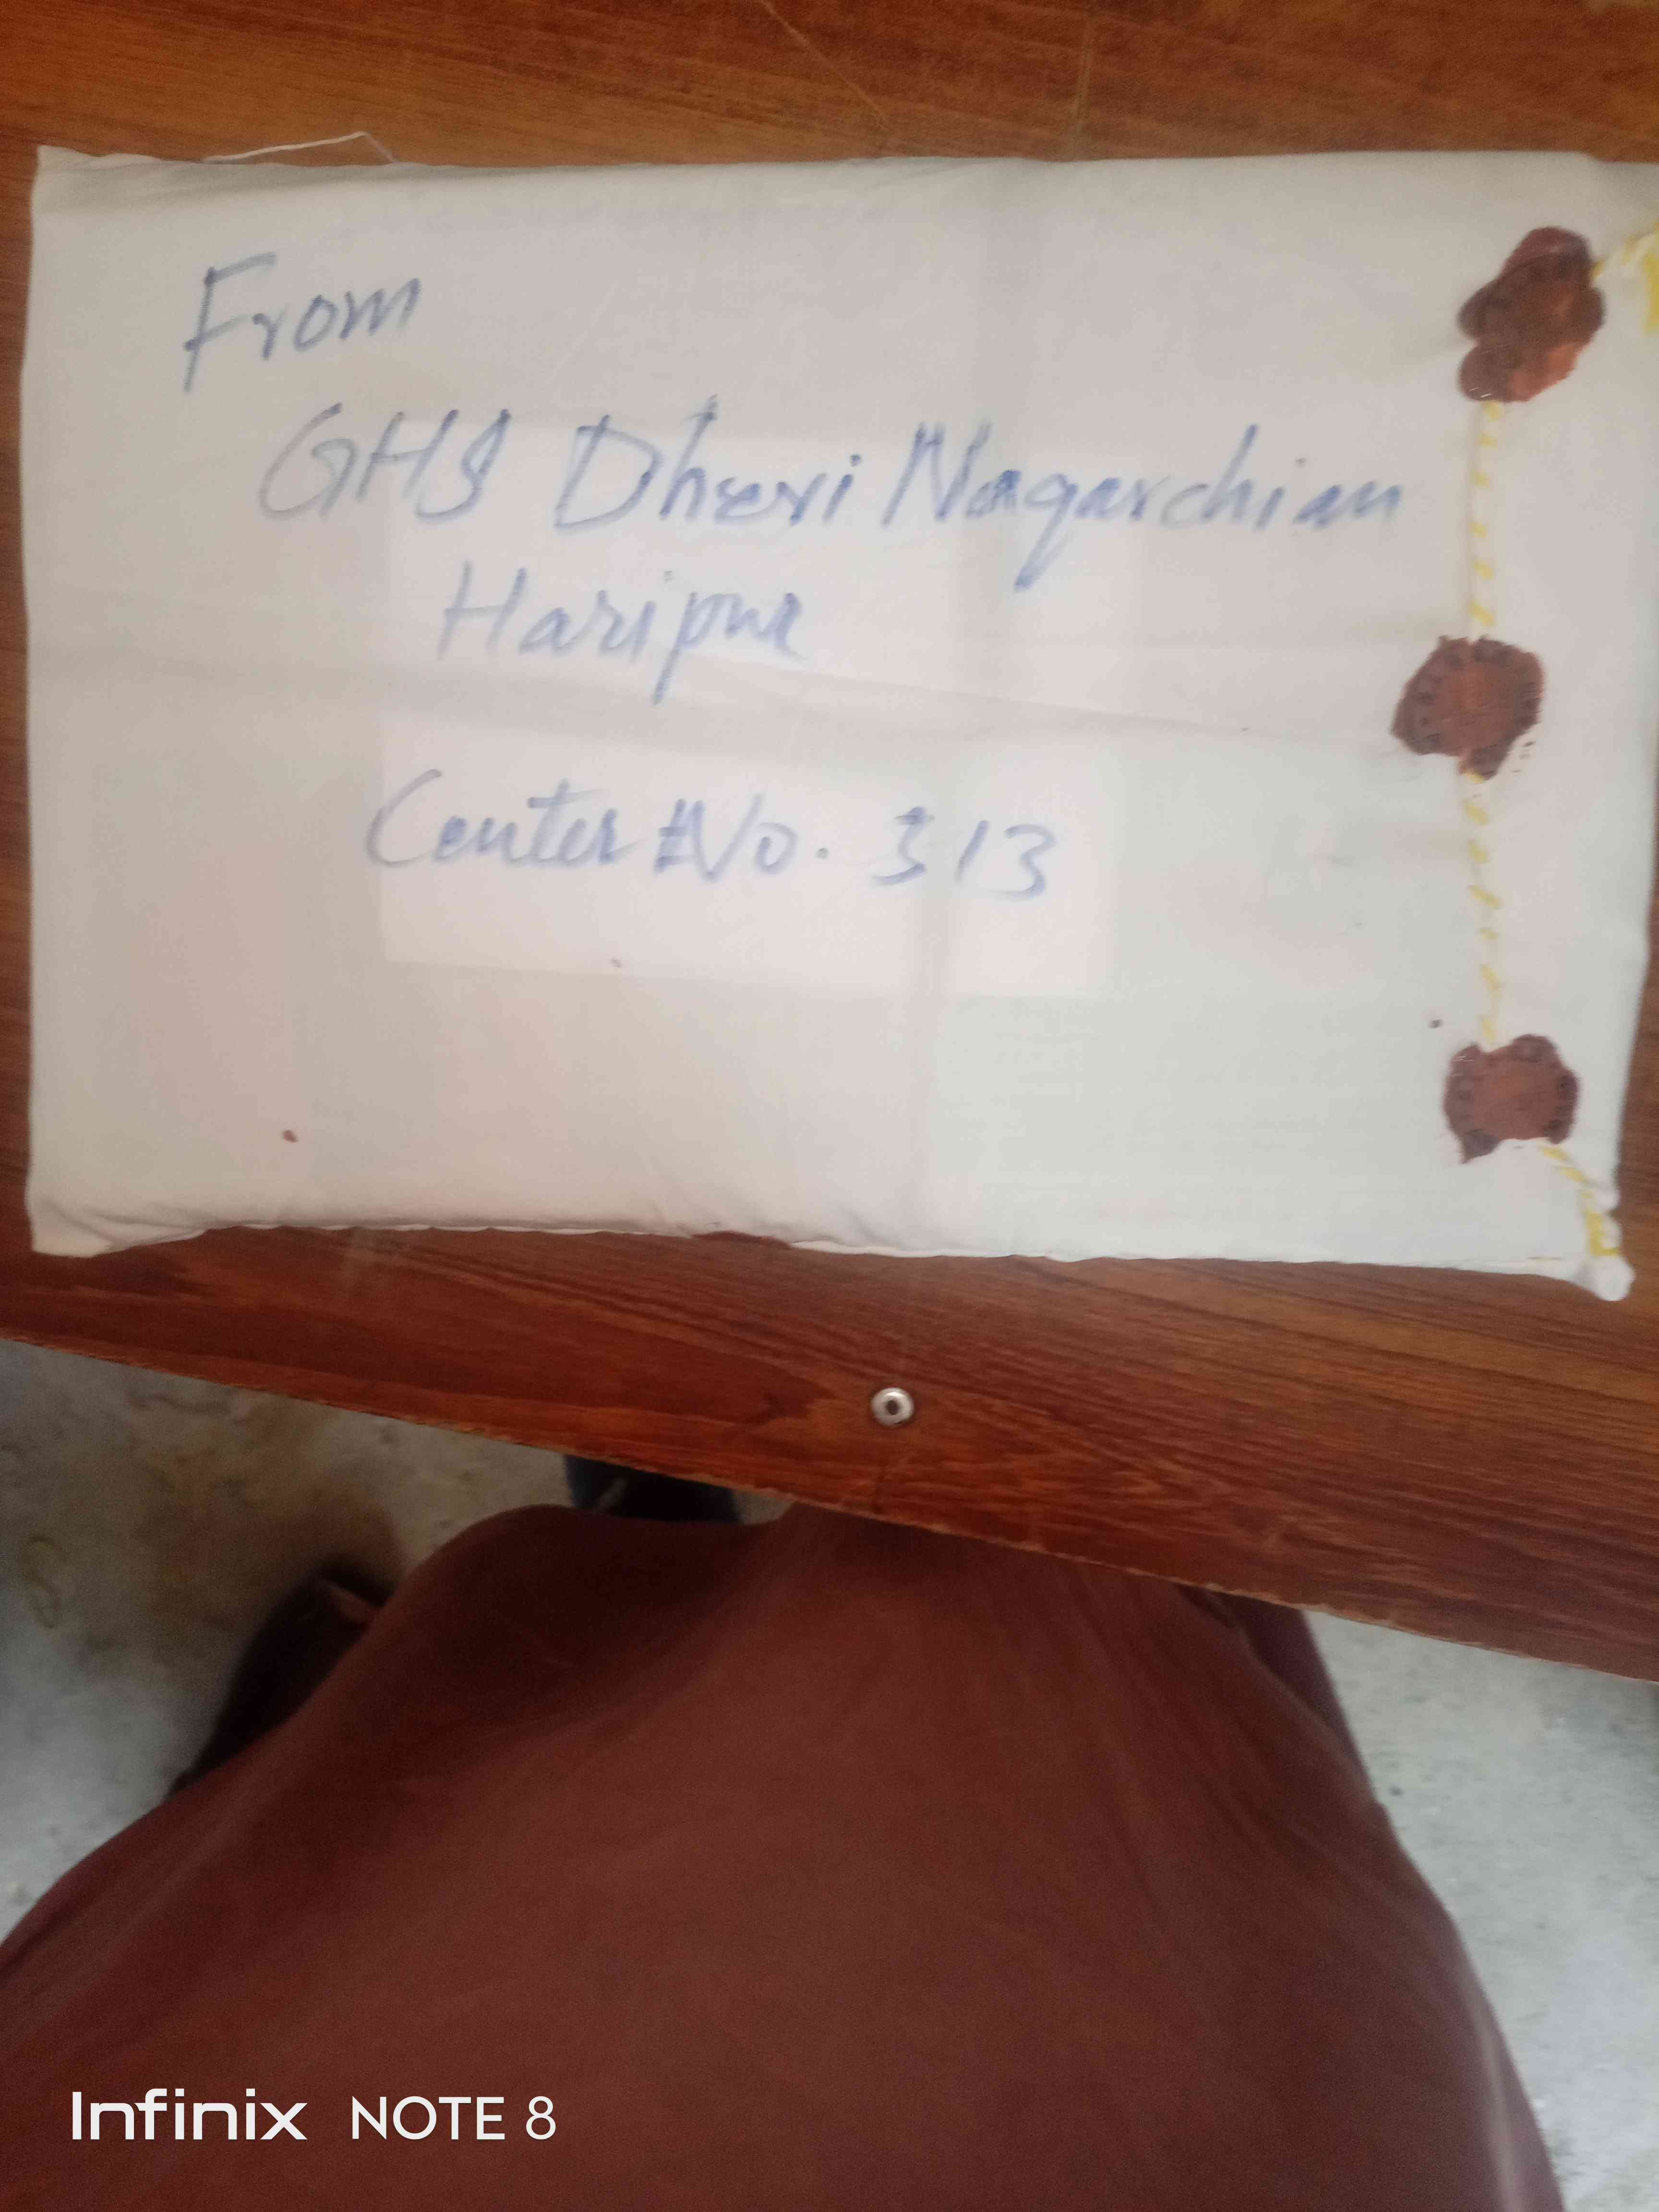 From
GHS Dheri Nagarchian
Haripur
Center No. 313
Infinix NOTE 8